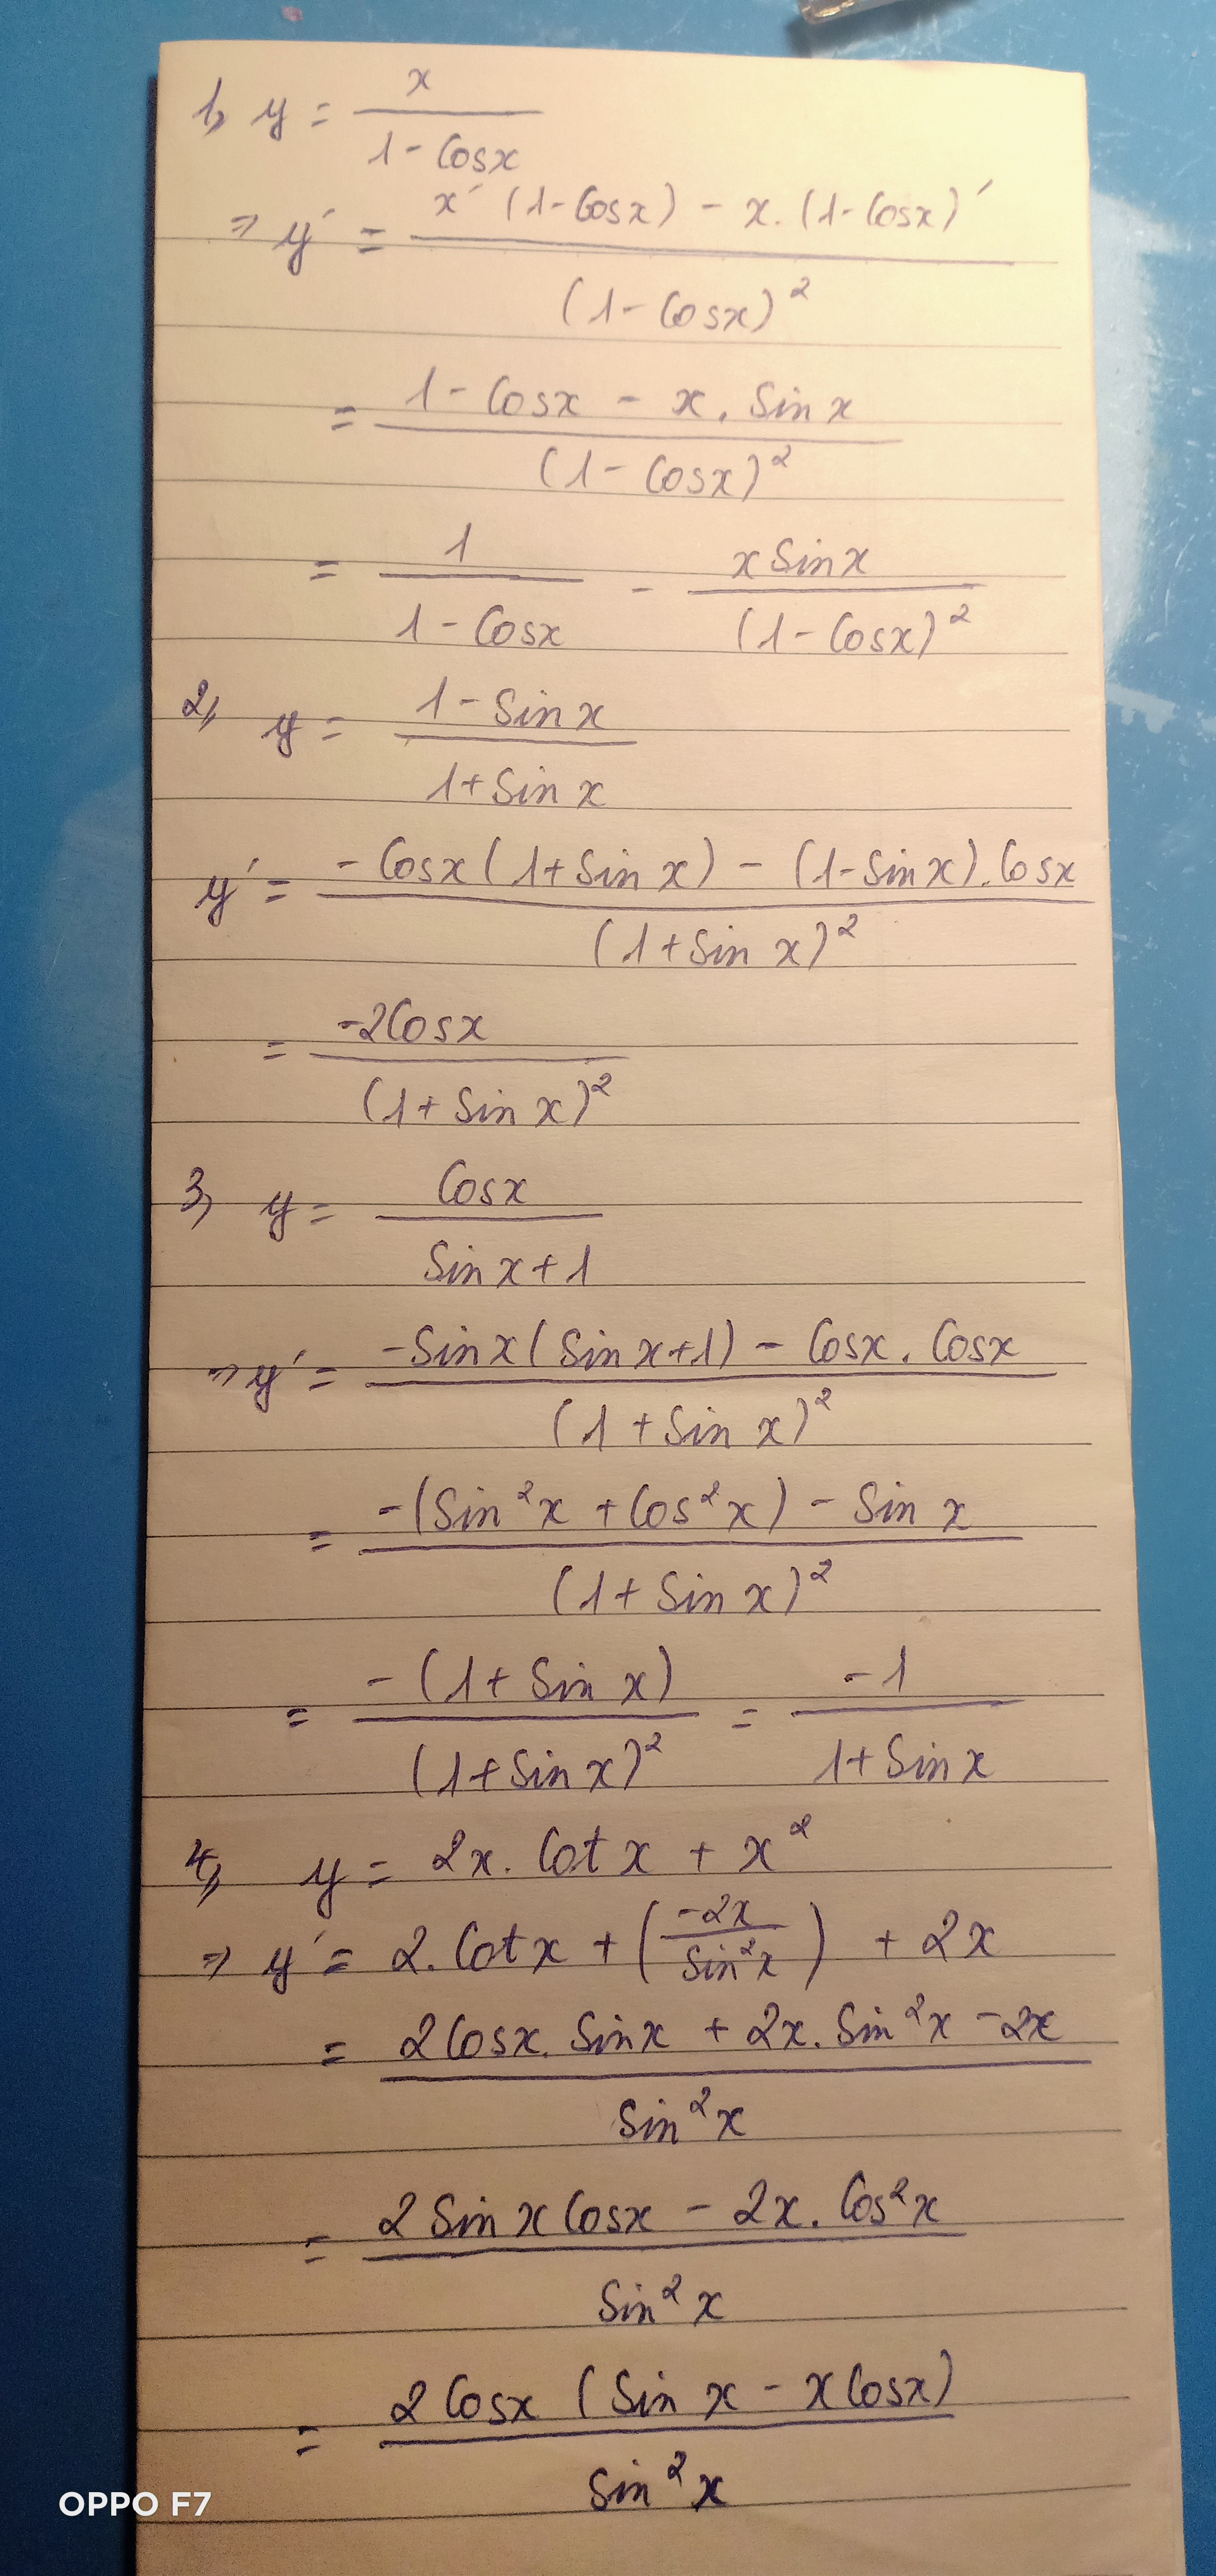 1, y = x / (1 - Cosx)
=> y' = (x' (1 - Cosx) - x. (1 - Cosx)') / (1 - Cosx)²
= (1 - Cosx - x. Sin x) / (1 - Cosx)²
= 1 / (1 - Cosx) - x Sin x / (1 - Cosx)²
2, y = (1 - Sin x) / (1 + Sin x)
y' = (- Cosx (1 + Sin x) - (1 - Sin x). Cosx) / (1 + Sin x)²
= -2Cosx / (1 + Sin x)²
3, y = Cosx / (Sin x + 1)
=> y' = (-Sin x (Sin x + 1) - Cosx. Cosx) / (1 + Sin x)²
= (-(Sin²x + Cos²x) - Sin x) / (1 + Sin x)²
= -(1 + Sin x) / (1 + Sin x)² = -1 / (1 + Sin x)
4, y = 2x. Cot x + x²
=> y' = 2. Cot x + (-2x / Sin²x) + 2x
= (2Cosx. Sin x + 2x. Sin²x - 2x) / Sin²x
= (2 Sin x Cosx - 2x. Cos²x) / Sin²x
= 2 Cosx (Sin x - x Cosx) / Sin²x
OPPO F7